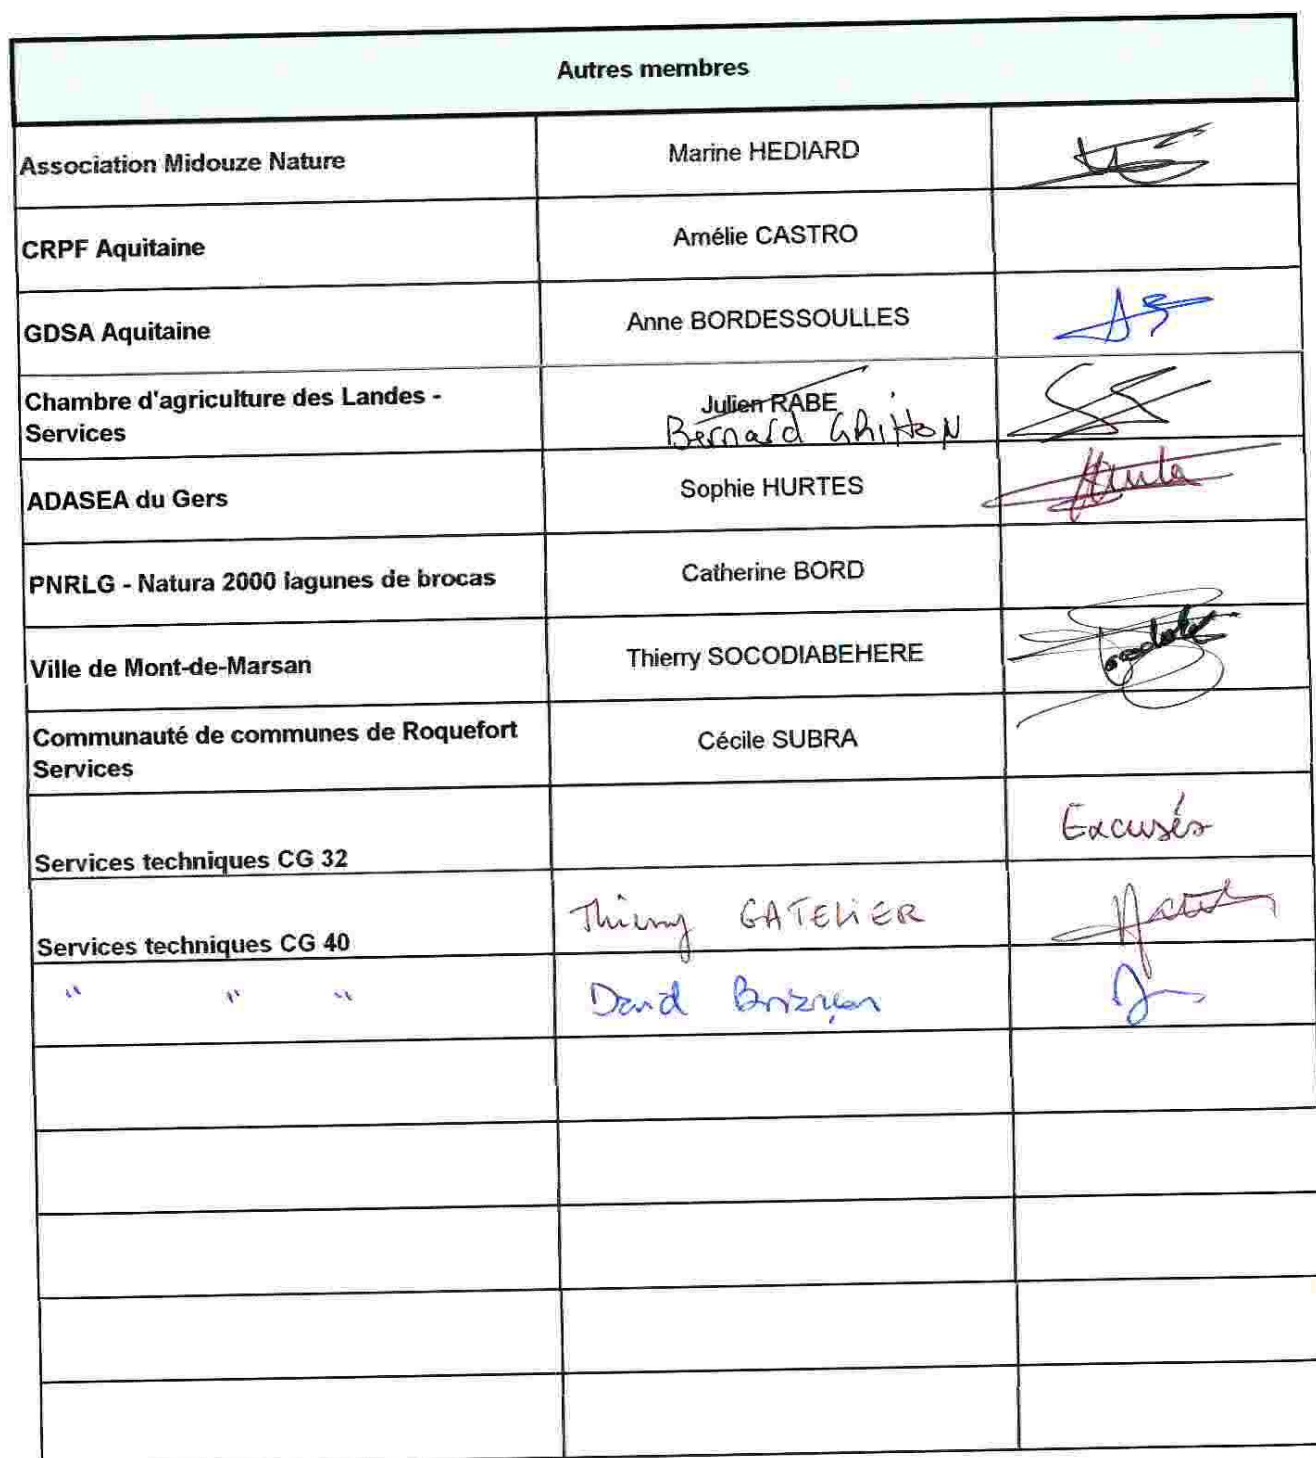 Autres membres
Association Midouze Nature
Marine HEDIARD
CRPF Aquitaine
Amélie CASTRO
GDSA Aquitaine
Anne BORDESSOULLES
Chambre d'agriculture des Landes -
Services
Julien RABE
Bernard
ADASEA du Gers
Sophie HURTES
PNRLG - Natura 2000 lagunes de brocas
Catherine BORD
Ville de Mont-de-Marsan
Thierry SOCODIABEHERE
Communauté de communes de Roquefort
Services
Cécile SUBRA
Services techniques CG 32
Excusés
Services techniques CG 40
Thierry GATELIER
" " "
David